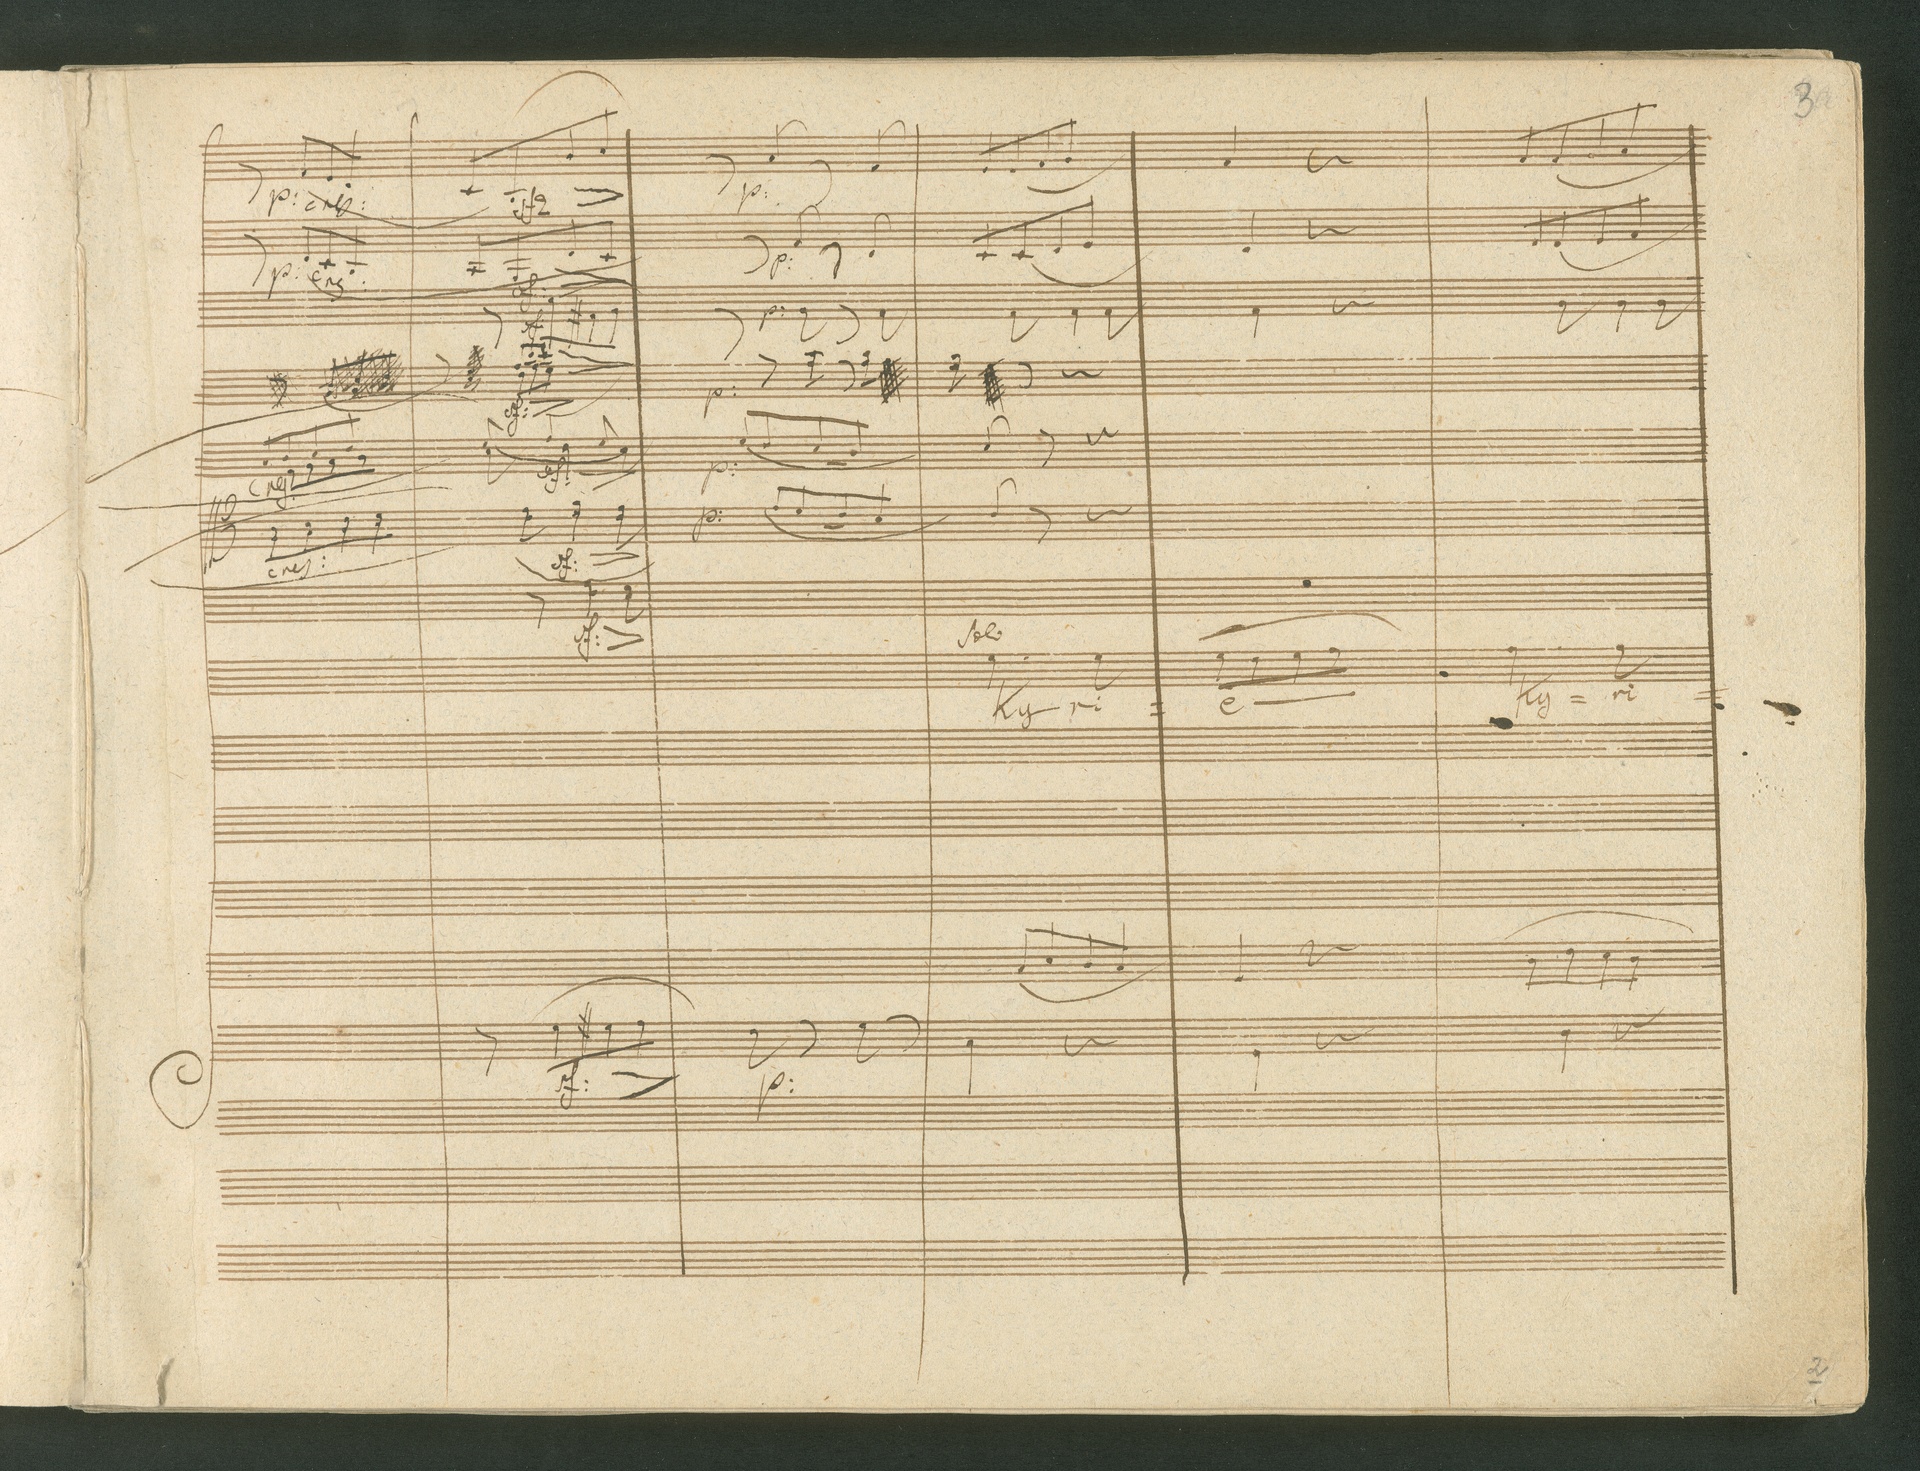 3
p: cres:
sf
p:
p: cres:
sf:
p:
p:
sf:
p:
sf:
cres:
sf:
p:
p:
cres:
sf:
sf:
Solo
Ky ri = e Ky = ri =
sf: p:
2